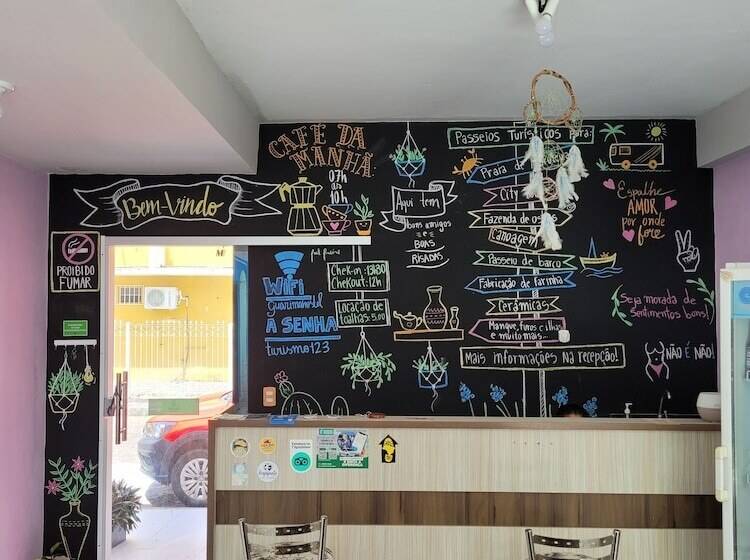 Bem-Vindo
PROIBIDO
FUMAR
CAFÉ DA
MANHÃ
07h
às
10h
WiFi
A SENHA
turismo123
Chek-in :13h30
Chekout: 12h
Locação de
toalhas: 5,00
Aqui tem
bons amigos
e
BOAS
RISADAS
Passeios Turísticos para:
Praia de
City
Fazenda de
Canoagem
Passeio de barco
Fabricação de farinha
Cerâmicas
Mangue, furos e ilhas
e muito mais...
Mais informações na recepção!
Espalhe
AMOR
por onde
for
Seja morada de
Sentimentos bons!
NÃO É NÃO!